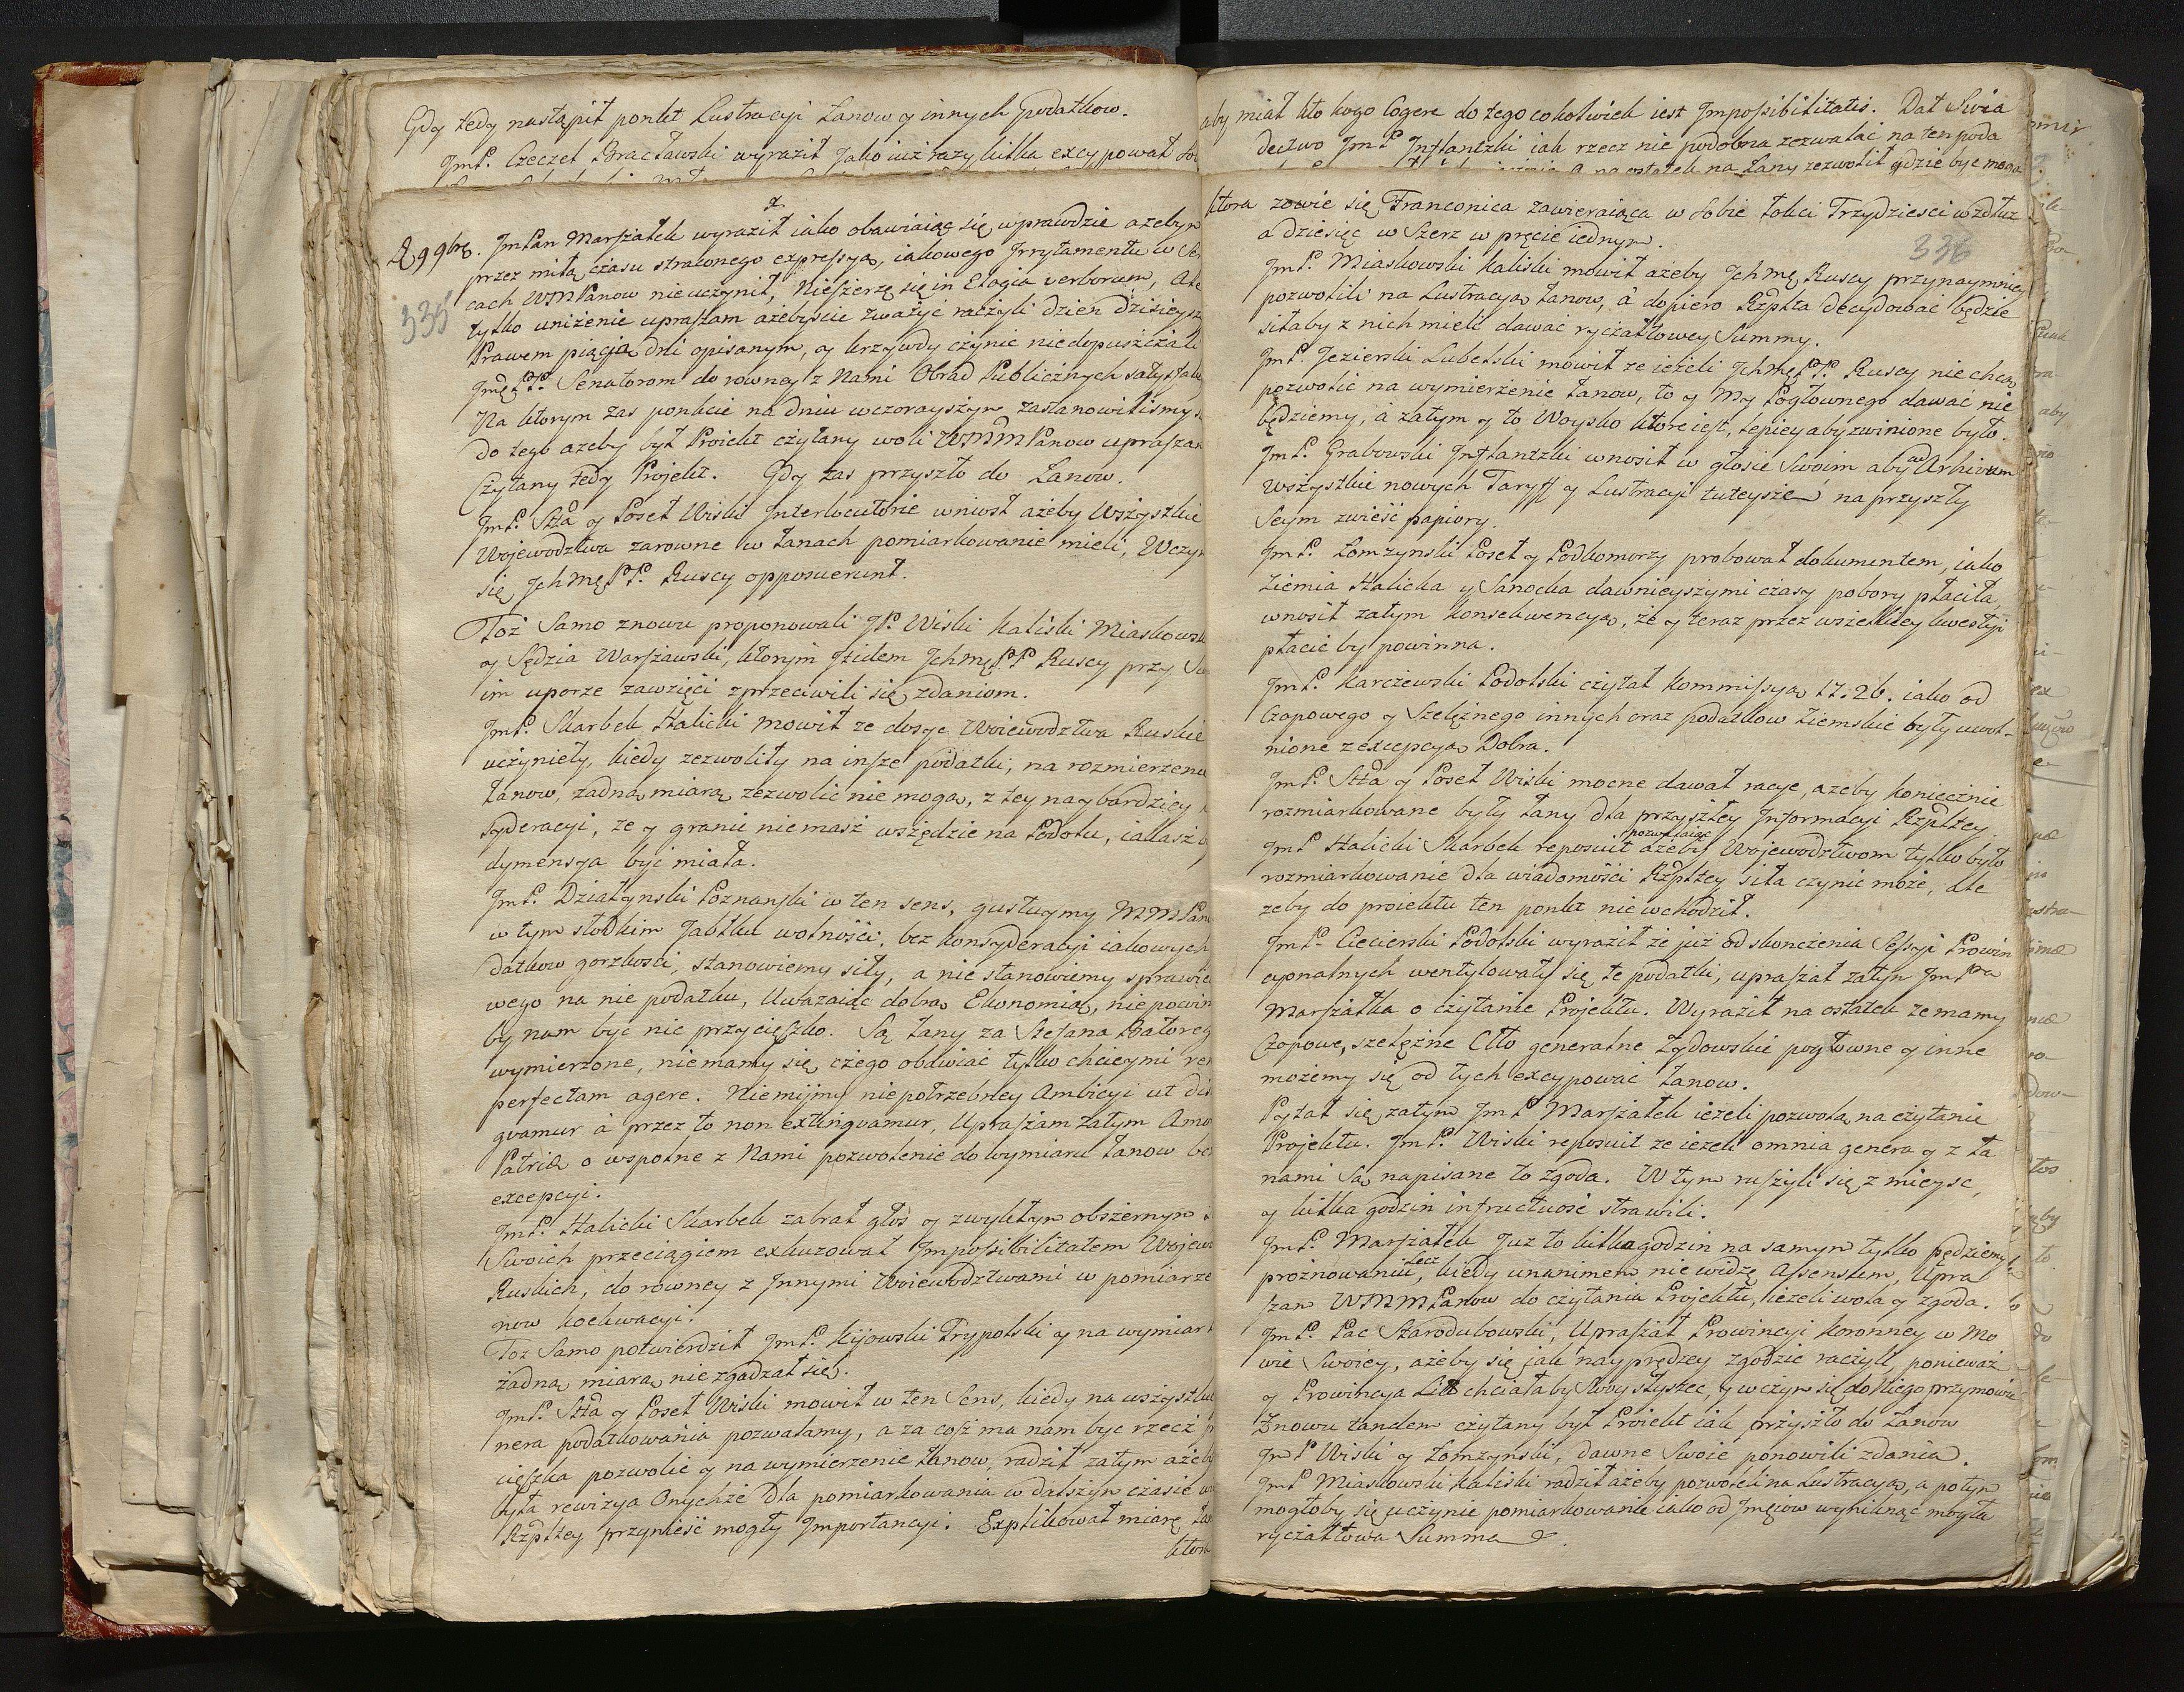 Gdy tedy nastąpił ponkt Lustracyi Łanow y innych Podatkow.
JmP. Czeczel Bracławski wyraził jako już razy kilka excypował
D 9 9brę. JmPan Marszałek wyraził iako obawiaiąc się wprawdzie ażebym
przez miłą czasu straconego expressyą, iakowego Jrrytamentu w
cach WMPanow nie uczynił, nieszerzę się in Elogia verborum, Ale
tylko uniżenie upraszam ażebyście zważyć raczyli dzień dzisieysz
Prawem pięcią dni opisanym, y krzywdy czynić niedopuszczali
JmęPP. Senatorom do rowney z Nami Obrad Publicznych
Na ktorym zas ponkcie na dniu wczorayszym zastanowilismy
do tego ażeby był Proiekt czytany woli WMMPanow upraszam
Czytany tedy Projekt. Gdy zas przyszło do Łanow.
JmP. Stta y Poseł Wiski Jnterlocutorie wniosł ażeby Wszystkie
Wojewodztwa zarowne w Łanach pomiarkowanie mieli, W czym
się JchmęPP. Ruscy opposuerunt.
Toż Samo znowu proponowali JP. Wiski Kaliski Miaskowski
y Sędzia Warszawski, ktorym Jtidem JchmęPP Ruscy przy Sw
im uporze zawzięci zprzeciwili się zdaniom.
JmP. Skarbek Halicki mowił ze dosyc Woiewodztwa Ruskie
uczyniely, kiedy zezwoliły na insze podatki, na rozmierzenie
Łanow, żadną miarą zezwolić nie mogą, z tey naybardziey
syderacyi, ze y granic niemasz wszędzie na Podolu, iakasz
dymensya być miała.
JmP. Działynski Poznanski w ten sens, gustuymy MMPan
w tym słodkim Jabłku wolności, bez konsyderacyi iakowych
datkow gorzkosci, stanowiemy siły, a nie stanowiemy sprawied
wego na nie podatku, Uwazaiąc dobrą Ekonomią, niepowin
by nam być nic przycięszko. Są Łany za Stefana Batoreg
wymierzone, niemamy się czego obawiać tylko chcieymi rem
perfectam agere. Niemijmy niepotrzebney Ambicyi ut dis
gvamur á przez to non extingvamur, Upraszam zatym Amo
Patriæ o wspolne z Nami pozwolenie do wymiaru Łanow bez
excepcyi.
JmP. Halicki Skarbek zabrał głos y zwykłym obszernym
Swoich przeciągiem exkuzował Jmpossibilitatem Wojew
Ruskich, do rowney z Jnnymi Woiewodztwami w pomiarze
now koekwacyi.
Toz Samo potwierdził JmP. Kijowski Trypolski y na wymiar
żadną miarą nie zgadzał się.
JmP. Stta y Poseł Wiski mowił w ten Sens, kiedy na wszystkie
nera podatkowania pozwalamy, a za cosz ma nam byc rzecz
cięszka pozwolić y na wymierzenie Łanow, radził zatym ażeby
była rewizya Onychże dla pomiarkowania w dalszym czasie
Rzpltey przynieść mogły Jmportancyi. Explikował miarę Ła
ktora
aby miał kto kogo Cogere do tego cokolwiek iest Jmpossibilitatis. Dał Swia
dectwo JmP Jnflantzki iak rzecz nie podobna zezwalać na ten poda
na ostatek na Łany zezwolił gdzie być mogą
ktora zowie się Franconica zawieraiąca w sobie Łokci Trzydziesci wzdłuz
a dziesięc w Szerz w pręcie iednym.
336
JmP. Miaskowski Kaliski mowił ażeby Jchmę Ruscy przynaymniey
pozwolili na Lustracyą Łanow, á dopiero Rzplta decydować będzie
siłaby z nich mieli dawać ryczałtowey Summy.
JmP. Jezierski Lubelski mowił ze ieżeli JchmęPP. Ruscy nie chcą
pozwolić na wymierżenie Łanow, to y My Pogłownego dawać nie
będziemy, á zatym y to Woysko ktore iest, lepiey aby zwinione było.
JmP. Grabowski Jnflantzki wnosił w głosie Swoim aby ad Arhivum
wszystkie nowych Taryff y Lustracyi tuteysze na przyszły
Seym zwieść papiory.
JmP. Łomzynski Poseł y Podkomorzy probował dokumentem, iako
Ziemia Halicka y Sanocka dawnieyszymi czasy pobory płaciła,
wnosił zatym konsekwencyą, że y teraz przez wszelkiey kwestyi
płacić by powinna.
JmP. Karczewski Podolski czytał Kommissyą 17.26. iako od
Czopowego y Szelężnego innych oraz podatkow Ziemskie były uwol-
nione z excepcyą Dobra.
JmP. Stta y Poseł Wiski mocne dawał racye, ażeby koniecznie
rozmiarkowane były Łany dla przyszłey Jnformacyi Rzpltey.
JmP Halicki Skarbek reposuit pozwalaiąc ażeby Wojewodztwom tylko było
rozmiarkowanie dla wiadomości Rzpltey siła czynić może, ale
zeby do proiektu ten ponkt nie wchodził.
JmP. Ciecierski Podolski wyraził że już od skonczenia Sessyi Prowin
cyonalnych wentylowały się te podatki, upraszał zatym JmPna
Marszałka o czytanie Projektu. Wyraził na ostatek ze mamy
Czopowe, szelężne Cło generalne Żydowskie pogłowne y inne
możemy się od tych excypować Łanow.
Pytał się zatym JmP Marszałek ieżeli pozwolą na czytanie
Projektu. JmP. Wiski reposuit ze ieżeli omnia genera y z Ła
nami są napisane to zgoda. W tym ruszyli się z mieysc,
y kilka godzin infructuose strawili.
JmP. Marszałek Juz to kilka godzin na samym tylko pędziemy
prożnowaniu, Lecz kiedy unanimem nie widzę Assensum, Upra
szam WMMPanow do czytania Projektu, ieżeli wola y zgoda.
JmP. Pac Starodubowski, Upraszał Prowincyi Koronney w Mo
wie Swoiey, ażeby się jak nayprędzey zgodzic raczyli, ponieważ
y Prowincya Lit chciałaby Swoy słyszec, y w czym się do Niego przymowic
Znowu tandem czytany był Proiekt iak przyszło do Łanow
JmP Wiski y Łomzynski, dawne Swoie ponowili zdania.
JmP Miaskowski Kaliski radził ażeby pozwolili na Lustracyą, a potym
mogłoby się uczynic pomiarkowanie iako od Jmęciow wyniknąć mogła
ryczałtowa Summa.